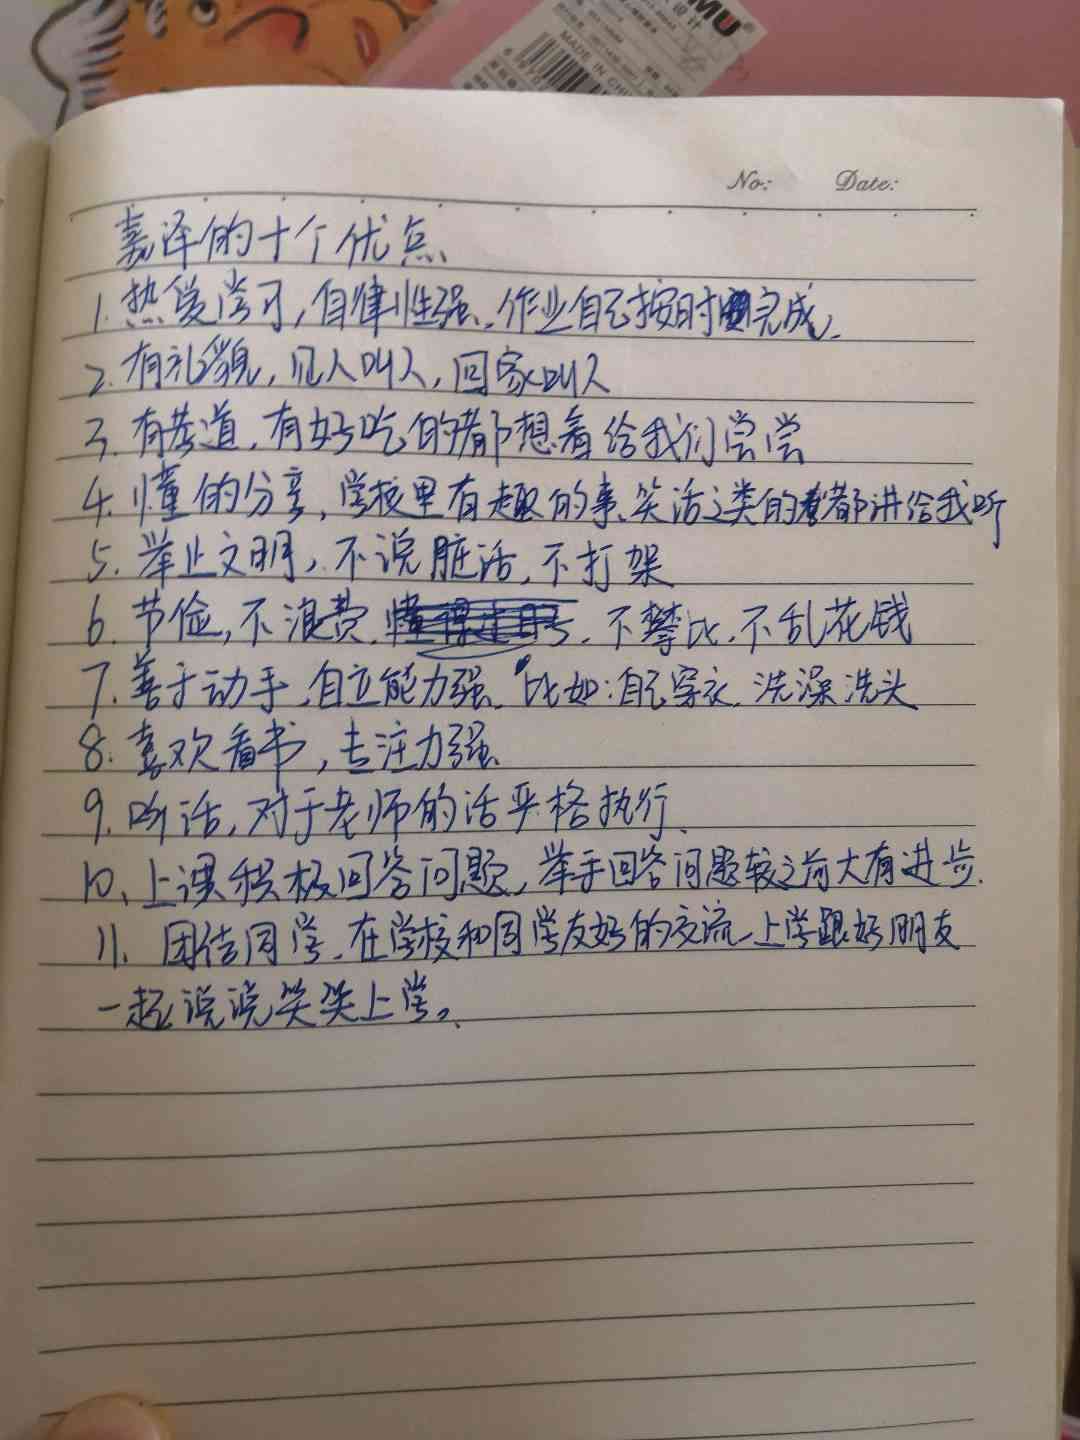 MU®
设计
MADE IN CHINA
No: Date:
嘉泽的十个优点
1. 热爱学习，自律性强、作业自己按时完成.
2. 有礼貌，见人叫人，回家叫人
3. 有孝道，有好吃的都想着给我们尝尝
4. 懂的分享，学校里有趣的事、笑话之类的都讲给我听
5. 举止文明，不说脏话，不打架
6. 节俭，不浪费. 不攀比. 不乱花钱
7. 善于动手，自立能力强. 比如：自己穿衣. 洗澡洗头
8. 喜欢看书，专注力强
9. 听话，对于老师的话严格执行.
10、上课积极回答问题，举手回答问题较之前大有进步.
11. 团结同学. 在学校和同学友好的交流、上学跟好朋友
一起说说笑笑上学。